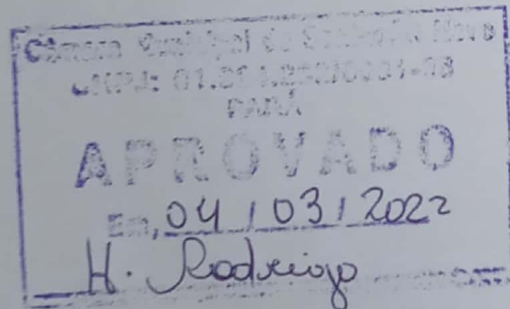 Câmara Municipal de Novo
CNPJ: 01.
PARÁ
APROVADO
Em, 04 / 03 / 2022
H. Rodrigo